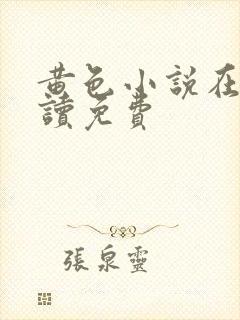 黃色小説在
讀免費
張泉靈